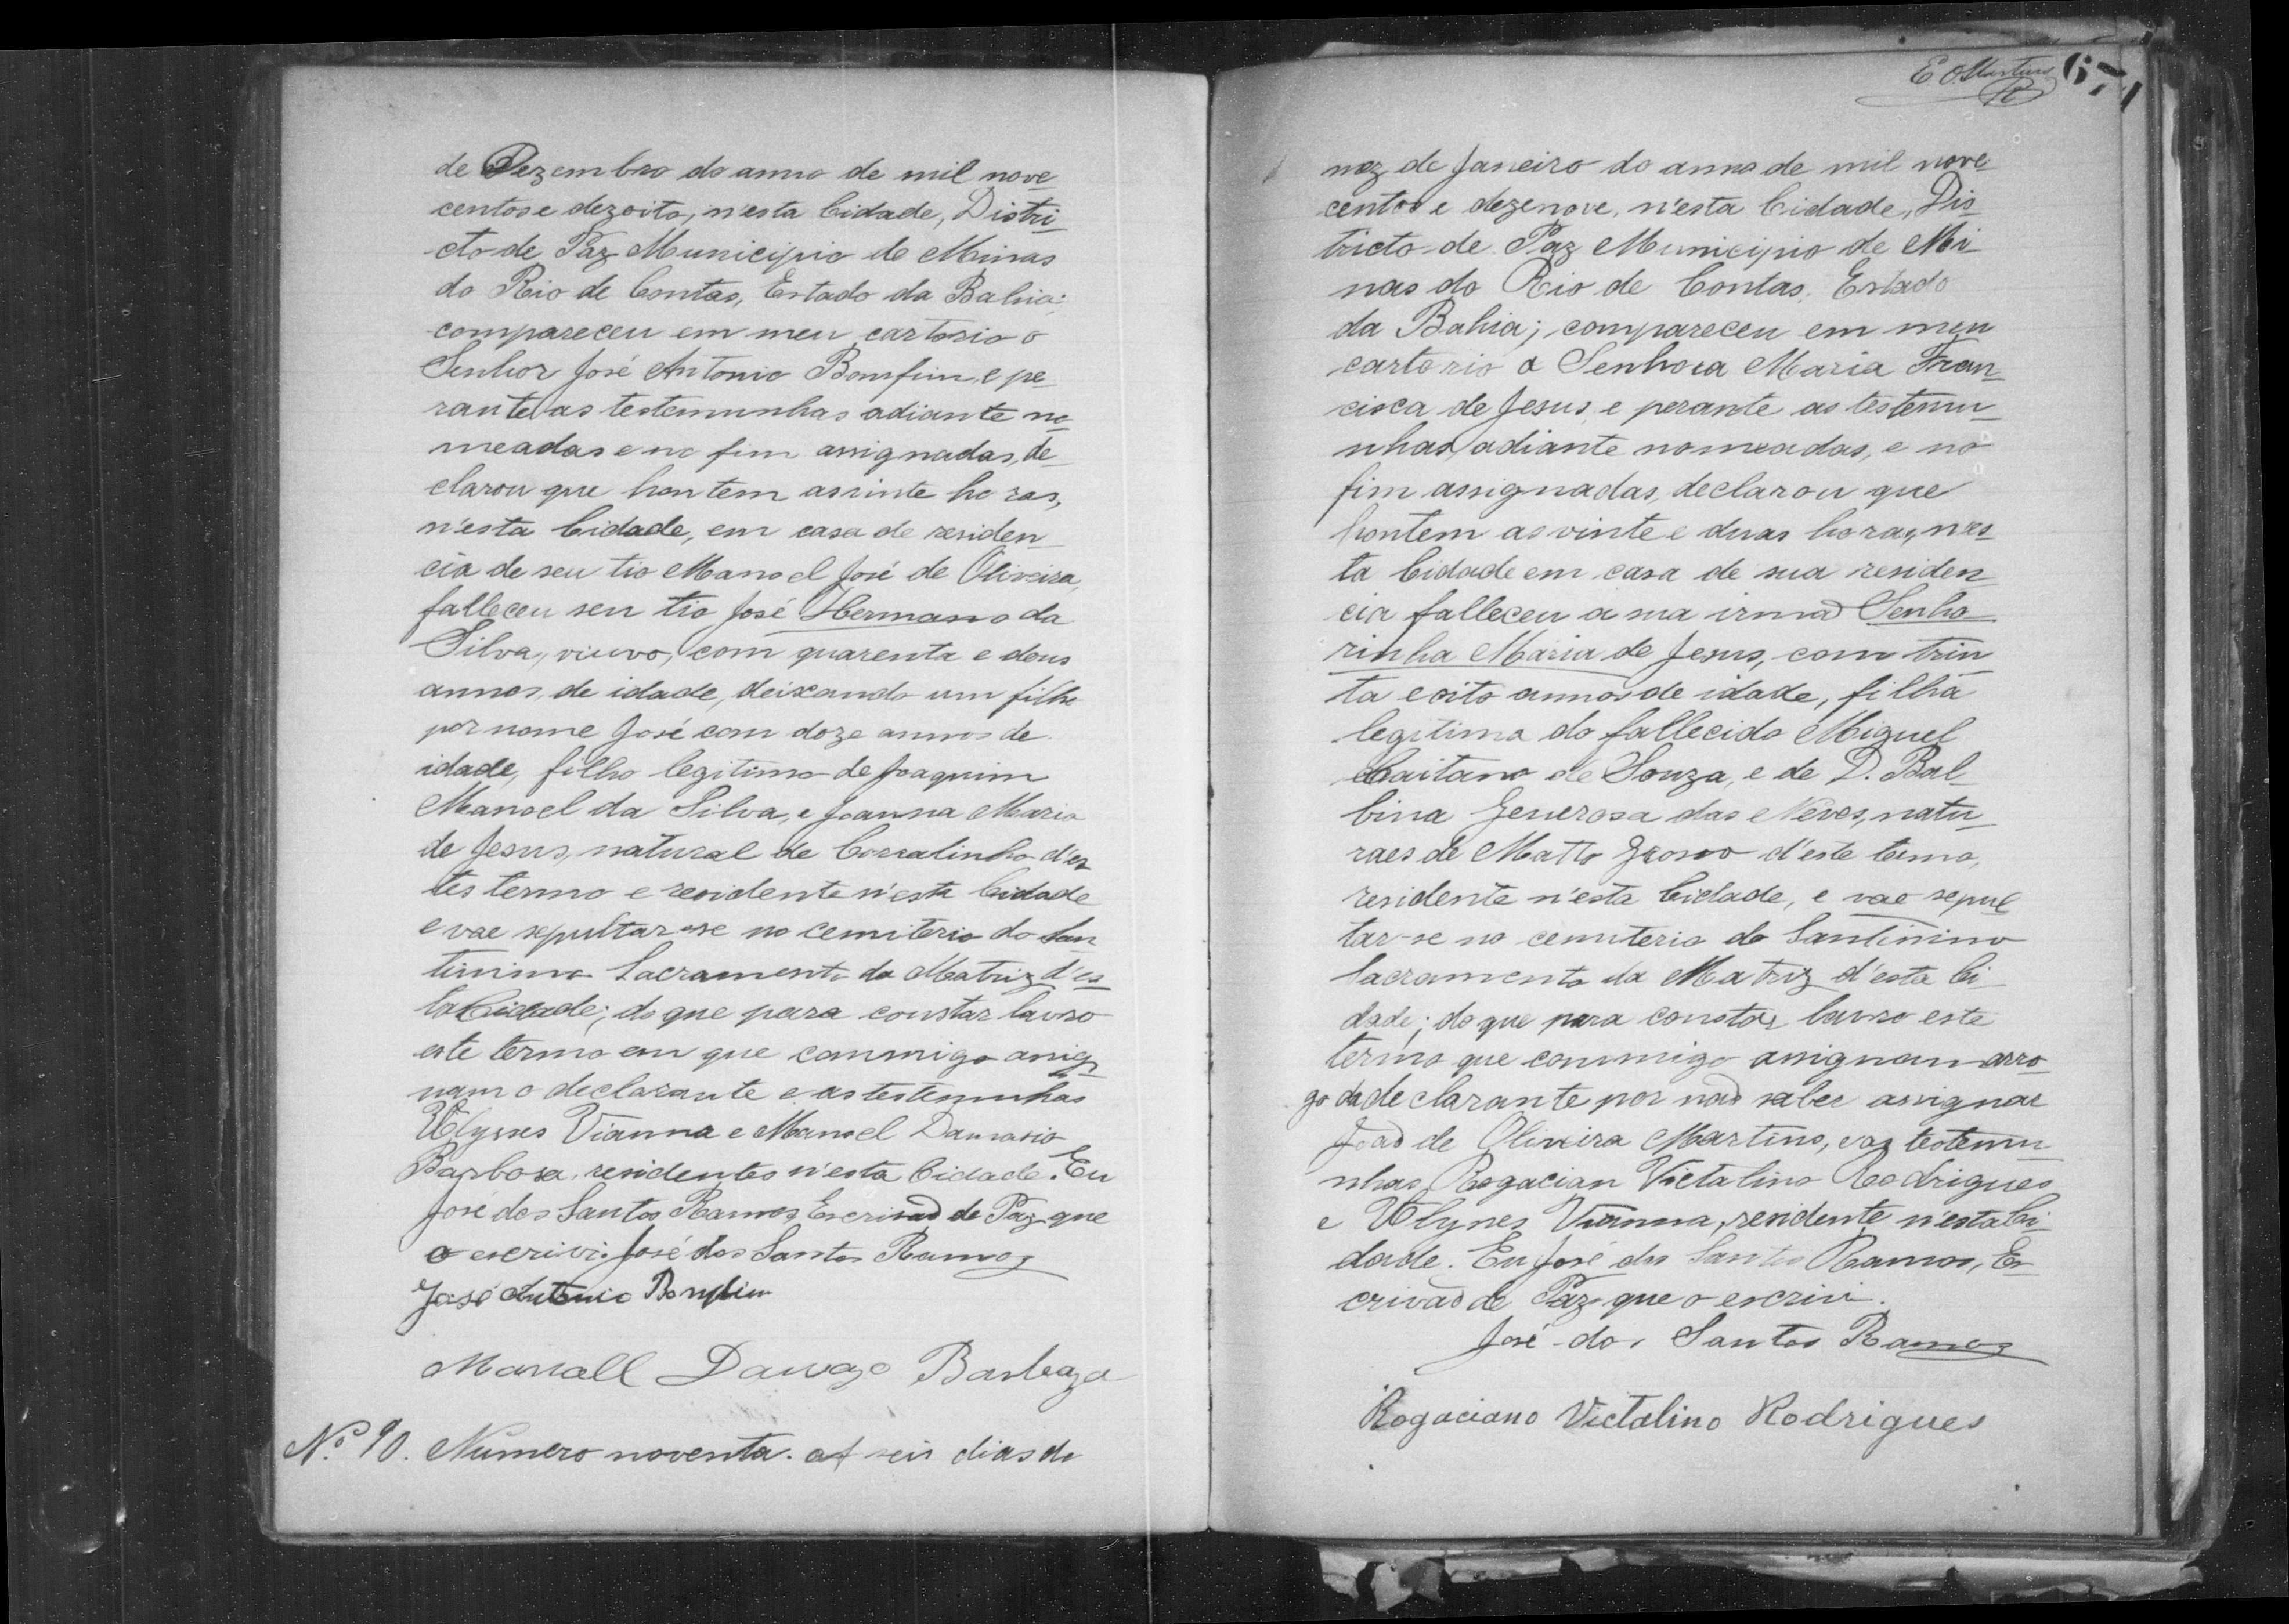 de Dezembro do anno de mil nove
centos e dezoito, n'esta Cidade, Distri
cto de Paz Municipio de Minas
do Rio de Contas, Estado da Bahia;
compareceu em meu cartorio o
Senhor José Antonio Bomfim, e pe
rante as testemunhas adiante no
meadas e no fim assignadas, de
clarou que hontem as vinte horas,
n'esta Cidade, em casa de residen
cia de seu tio Manoel José de Oliveira,
falleceu seu tio José Hermano da
Silva, viuvo, com quarenta e dous
annos de idade, deixando um filho
por nome José com doze annos de
idade, filho legitimo de Joaquim
Manoel da Silva, e Joanna Maria
de Jesus, natural de Corralinho d'es
tes termo e residente n'esta Cidade
e vae sepultar-se no cemiterio do San
tissimo Sacramento da Matriz d'es
ta Cidade; do que para constar lavro
este termo em que commigo assig
nam o declarante e as testemunhas
Ulysses Vianna e Manoel Damasio
Barbosa, residentes n'esta Cidade. Eu
José dos Santos Ramos, Escrivaõ de Paz que
o escrivi. José dos Santos Ramos
José Antonio Bomfim
Manoell Barboza
Nº 90. Numero noventa. A seis dias do
E O Martins 67
mez de Janeiro do anno de mil nove
centos e dezenove, n'esta Cidade, Dis
tricto de Paz Municipio de Mi
nas do Rio de Contas, Estado
da Bahia; compareceu em meu
cartorio a Senhora Maria Fran
cisca de Jesus, e perante as testemu
nhas, adiante nomeadas, e no
fim assignadas, declarou que
hontem as vinte e duas horas, n'es
ta Cidade em casa de sua residen
cia falleceu a sua irmaõ Senho
rinha Maria de Jesus, com trin
ta e oito annos de idade, filha
legitima do fallecido Miguel
Caitano de Souza, e de D. Bal
bina Generosa das Neves, natu
raes de Matto Grosso d'este termo,
residente n'esta Cidade, e vae sepul
tar-se no cemiterio do Santissimo
Sacramento da Matriz d'esta Ci
dade; do que para constar lavro este
termo que commigo assignam arro
go da declarante por naõ saber assignar
Joaõ de Oliveira Martins, e as testemu
nhas Rogacian Victalino Rodrigues
e Ulysses Vianna, residente n'esta Ci
dade. Eu José dos Santos Ramos, Es
crivaõ de Paz que o escrivi.
José dos Santos Ramos
Rogaciano Victalino Rodrigues